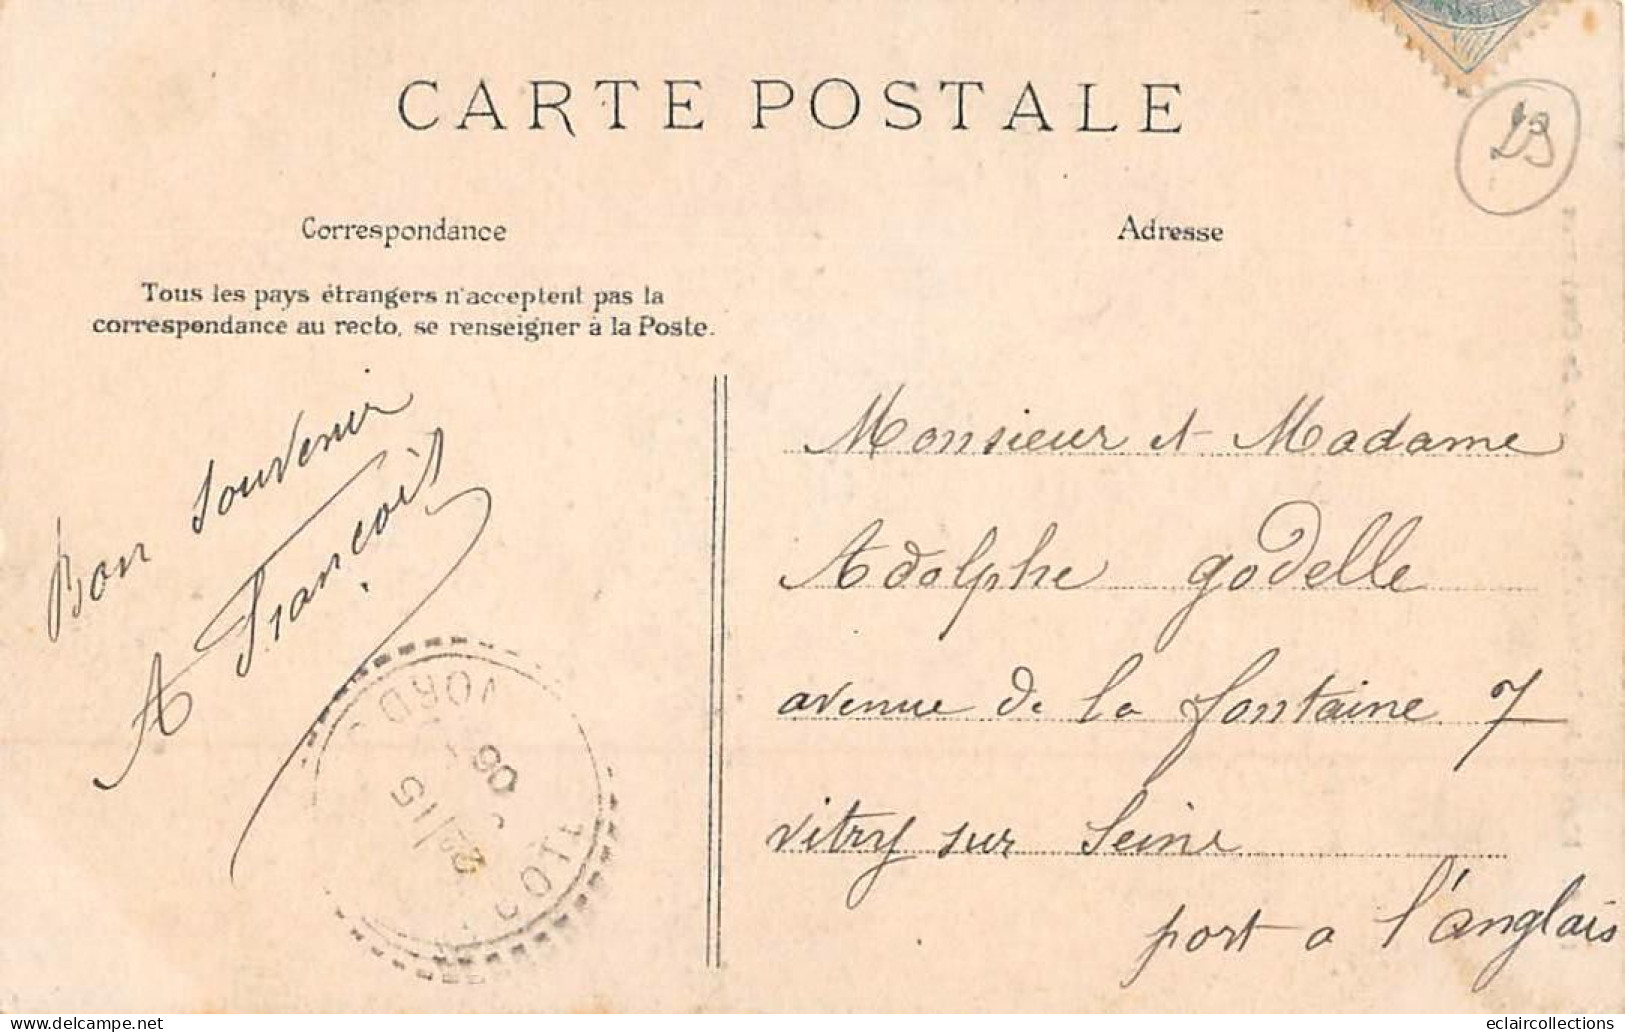 CARTE POSTALE
29
Correspondance
Adresse
Tous les pays étrangers n'acceptent pas la
correspondance au recto, se renseigner à la Poste.
Bon Souvenir
A François
Monsieur et Madame
Adolphe godelle
avenue de la fontaine 7
vitry sur Seine
port a l'anglais
15
06
eclaircollections